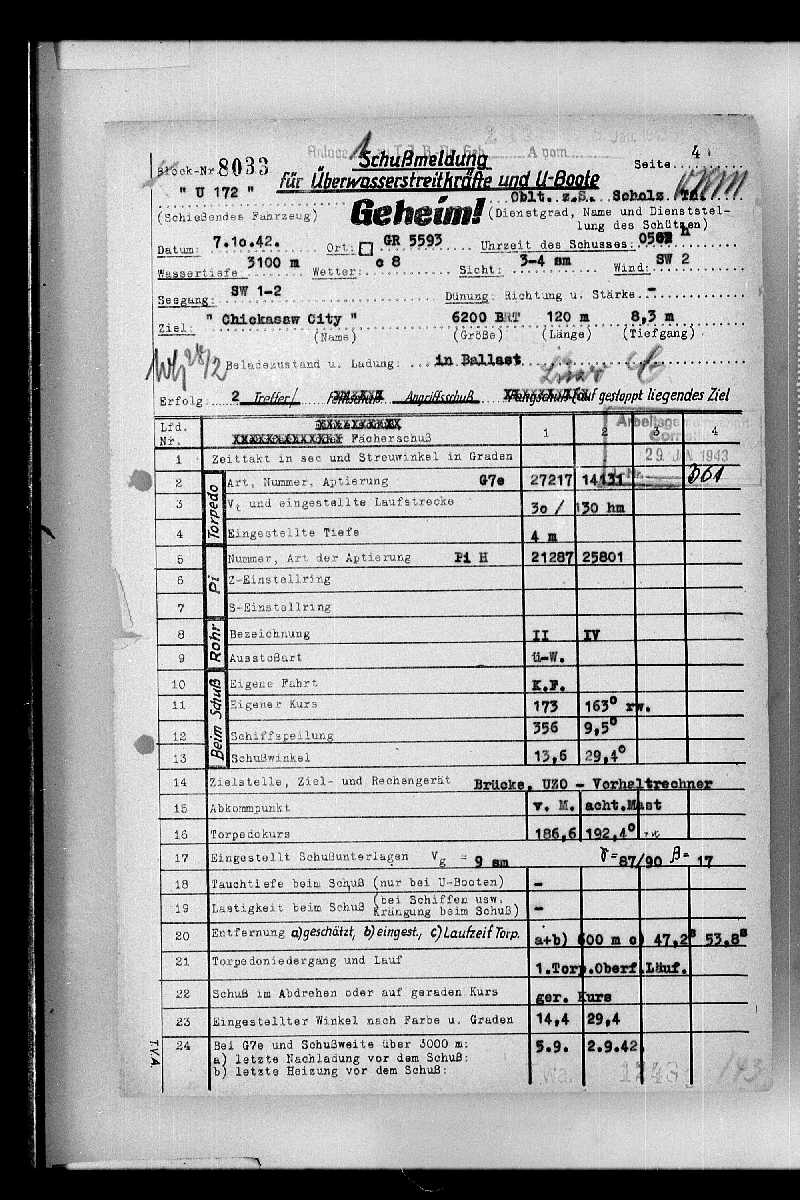 Block-Nr 8033
Schußmeldung
Seite 4
für Überwasserstreitkräfte und U-Boote
" U 172 "
Oblt. z.S. Scholz
(Schießendes Fahrzeug)
Geheim!
(Dienstgrad, Name und Dienststel-
lung des Schützen)
Datum: 7.10.42. Ort: GR 5593 Uhrzeit des Schusses:
Wassertiefe 3100 m Wetter: c 8 Sicht: 3-4 sm Wind: SW 2
Seegang: SW 1-2 Dünung: Richtung u. Stärke -
Ziel: " Chickasaw City " 6200 BRT 120 m 8,3 m
(Name) (Größe) (Länge) (Tiefgang)
Beladezustand u. Ladung: in Ballast
Erfolg: 2 Treffer/ Fehlschuß Angriffsschuß Fangschuß (auf gestoppt liegendes Ziel
Lfd. Nr. Fächerschuß 1 2 3 4
29. JAN 1943
1 Zeittakt in sec und Streuwinkel in Graden
Torpedo
2 Art, Nummer, Aptierung G7e 27217 14131 361
3 Vt und eingestellte Laufstrecke 30 / 130 hm
4 Eingestellte Tiefe 4 m
Pi
5 Nummer, Art der Aptierung Pi H 21287 25801
6 Z-Einstellring
7 S-Einstellring
Rohr
8 Bezeichnung II IV
9 Ausstoßart ü-W.
Beim Schuß
10 Eigene Fahrt K.F.
11 Eigener Kurs 173 163° rw.
12 Schiffspeilung 356 9,5°
13 Schußwinkel 13,6 29,4°
14 Zielstelle, Ziel- und Rechengerät Brücke, UZO - Vorhaltrechner
15 Abkommpunkt v. M. acht.Mast
16 Torpedokurs 186,6 192,4°
17 Eingestellt Schußunterlagen Vg = 9 sm γ= 87/90 β= 17
18 Tauchtiefe beim Schuß (nur bei U-Booten) -
19 Lastigkeit beim Schuß (bei Schiffen usw. Krängung beim Schuß) -
20 Entfernung a)geschätzt, b)eingest., c)Laufzeit Torp. a+b) 600 m c) 47,2s 53,8s
21 Torpedoniedergang und Lauf 1.Torp.Oberf.Läuf.
22 Schuß im Abdrehen oder auf geraden Kurs ger. Kurs
23 Eingestellter Winkel nach Farbe u. Graden 14,4 29,4
24 Bei G7e und Schußweite über 3000 m: 5.9. 2.9.42
a) letzte Nachladung vor dem Schuß:
b) letzte Heizung vor dem Schuß: